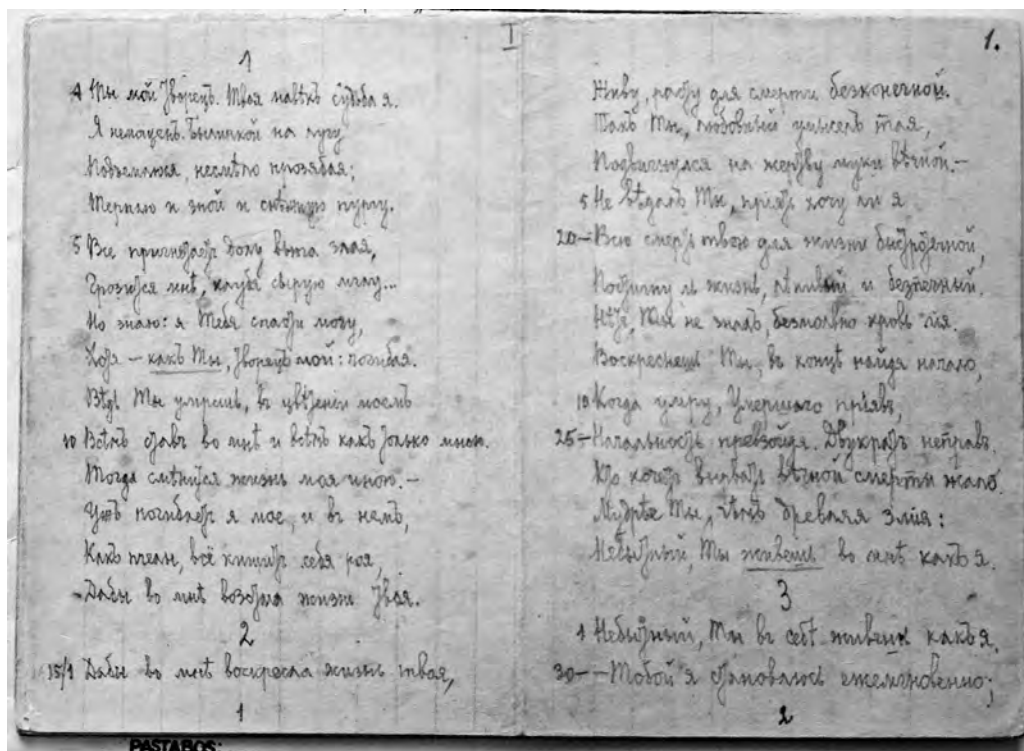 I
1.
1
1 Ты мой Творецъ. Твоя навѣкъ судьба я.
Я немощенъ. Былинкой на лугу
Подъемлюся, несмѣло прозябая;
Терплю и зной и снѣжную пургу.
5 Все пригнетаетъ долу вьюга злая,
Грозится мнѣ, клубя сырую мглу...
Но знаю: я Тебя спасти могу,
Хотя – какъ Ты, Творецъ мой: погибая.
Вѣдь Ты умрешь, въ цвѣтеніи моемъ
10 Всѣмъ ставъ во мнѣ и всѣмъ какъ только мною.
Тогда смѣнится жизнь моя иною. –
Ужъ погибаетъ я мое, и въ немъ,
Какъ пчелы, всё кишитъ себя роя,
Дабы во мнѣ жизнь Твоя.
2
15/1 Дабы во мнѣ воскресла жизнь твоя,
1
Живу, расту для смерти безконечной.
Такъ Ты, любовный умыселъ тая,
Подвигнулся на жертву муки вѣчной. –
5 Не вѣдалъ Ты, пріять хочу ли я
20– Всю смерть твою для жизни быстротечной,
Постигну ль жизнь, лѣнивый и безпечный.
Нѣтъ, Ты не зналъ, безмолвно кровь лія.
Воскреснешь Ты, въ концѣ найдя начало,
10 Когда умру, Умершаго пріявъ,
25– Начальность превзойдя. Двукратъ неправъ
Кто хочетъ вырвать вѣчной смерти жало.
Мудрѣе Ты, чѣмъ древняя змія:
Небытный, Ты живешь во мнѣ какъ я.
3
1 Небытный, Ты въ себѣ живешь какъ я.
30– –Тобой я становлюсь ежемгновенно;
2
PASTABOS: